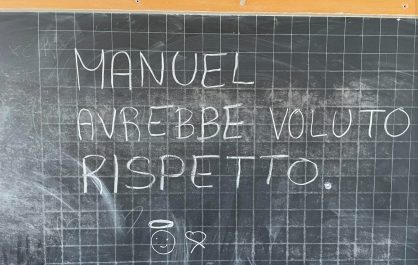 MANUEL
AVREBBE VOLUTO
RISPETTO.